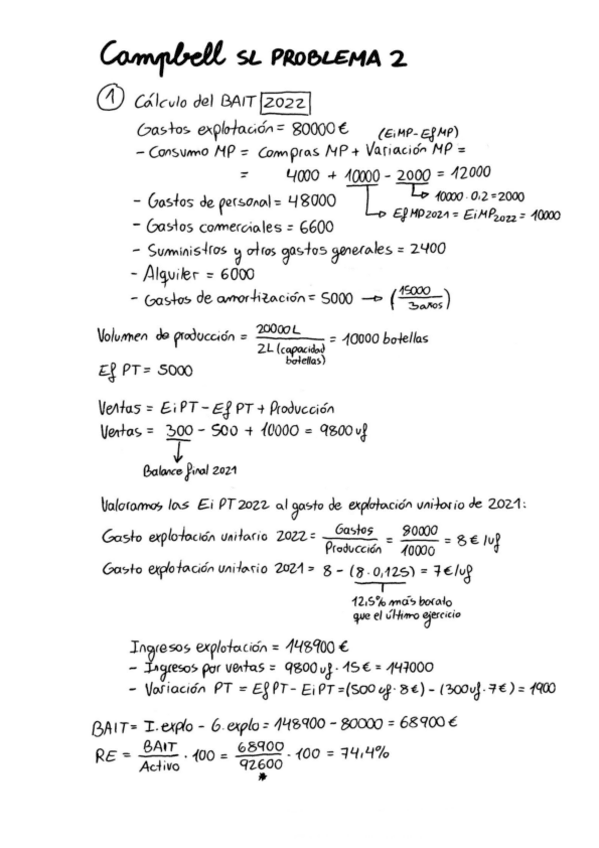 Campbell SL PROBLEMA 2
① Cálculo del BAIT 2022
Gastos explotación = 80000 €
(EiMP - EfMP)
- Consumo MP = Compras MP + Variación MP =
= 4000 + 10000 - 2000 = 12000
↳ 10000 · 0,2 = 2000
- Gastos de personal = 48000
↳ EfMP2021 = EiMP2022 = 10000
- Gastos comerciales = 6600
- Suministros y otros gastos generales = 2400
- Alquiler = 6000
- Gastos de amortización = 5000 → (15000 / 3 años)
Volumen de producción = 20000 L / 2L (capacidad botellas) = 10000 botellas
Ef PT = 5000
Ventas = EiPT - EfPT + Producción
Ventas = 300 - 500 + 10000 = 9800 uf
↓
Balance final 2021
Valoramos las EiPT 2022 al gasto de explotación unitario de 2021:
Gasto explotación unitario 2022 = Gastos / Producción = 80000 / 10000 = 8 € /uf
Gasto explotación unitario 2021 = 8 - (8 · 0,125) = 7 €/uf
12,5% más barato
que el último ejercicio
Ingresos explotación = 148900 €
- Ingresos por ventas = 9800 uf · 15 € = 147000
- Variación PT = EfPT - EiPT = (500 uf · 8€) - (300 uf · 7€) = 1900
BAIT = I. explo - G. explo = 148900 - 80000 = 68900 €
RE = BAIT / Activo · 100 = 68900 / 92600 · 100 = 74,4%
*